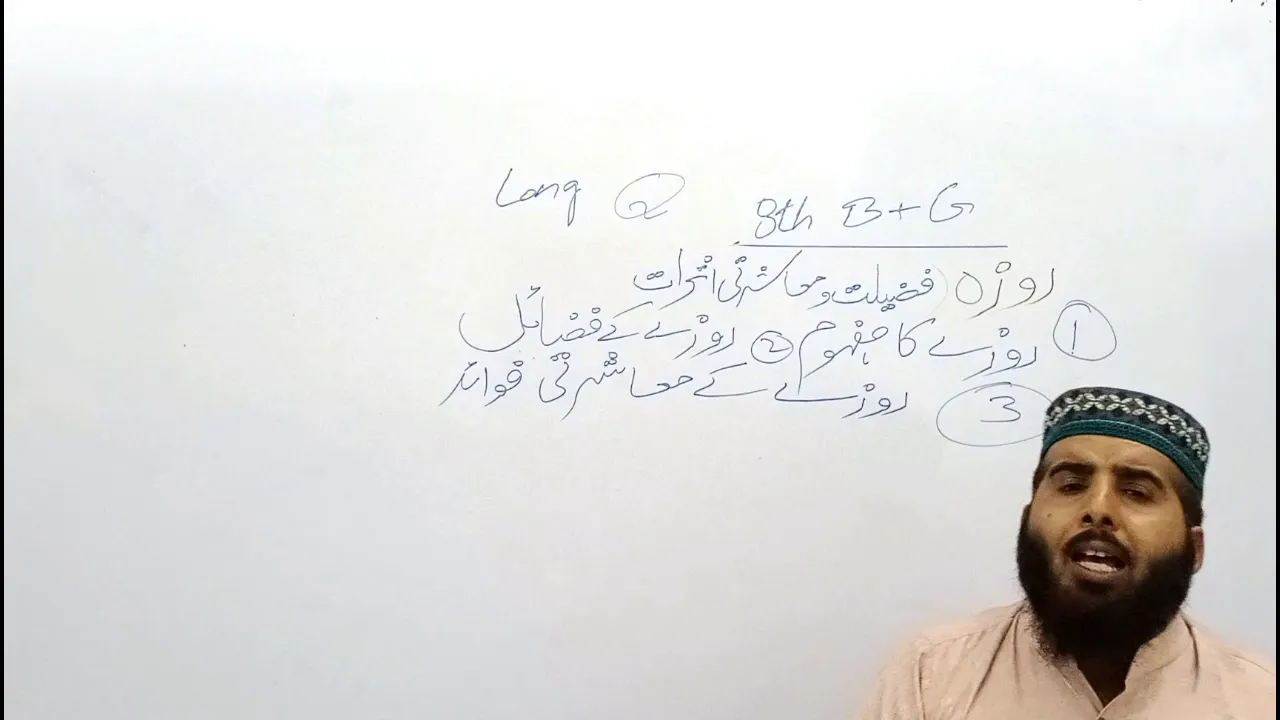 Long Q 8th B+G
روزہ (فضیلت و معاشرتی اثرات
① روزے کا مفہوم ② روزے کے فضائل
③ روزے کے معاشرتی فوائد